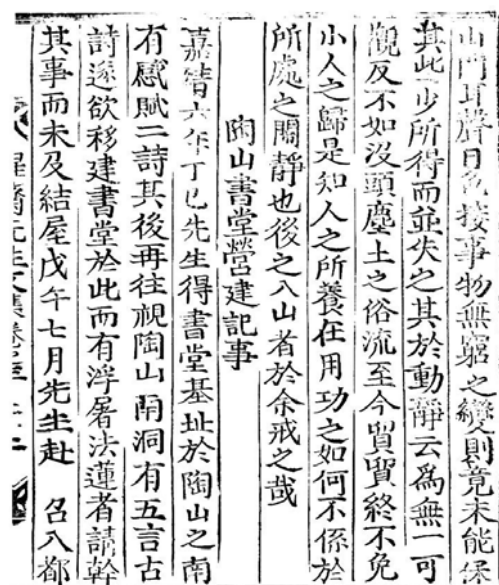 山門耳聲目色接事物無窮之變則竟未能保
其此少所得而並失之其於動靜云爲無一可
觀反不如沒頭塵土之俗流至今貿貿終不免
小人之歸是知人之所養在用功之如何不係於
所處之鬧靜也後之入山者於余戒之哉
陶山書堂營建記事
嘉靖六年丁巳先生得書堂基址於陶山之南
有感賦二詩其後再往視陶山南洞有五言古
詩遂欲移建書堂於此而有浮屠法蓮者請幹
其事而未及結屋戊午七月先生赴 召入都
惺齋先生文集卷